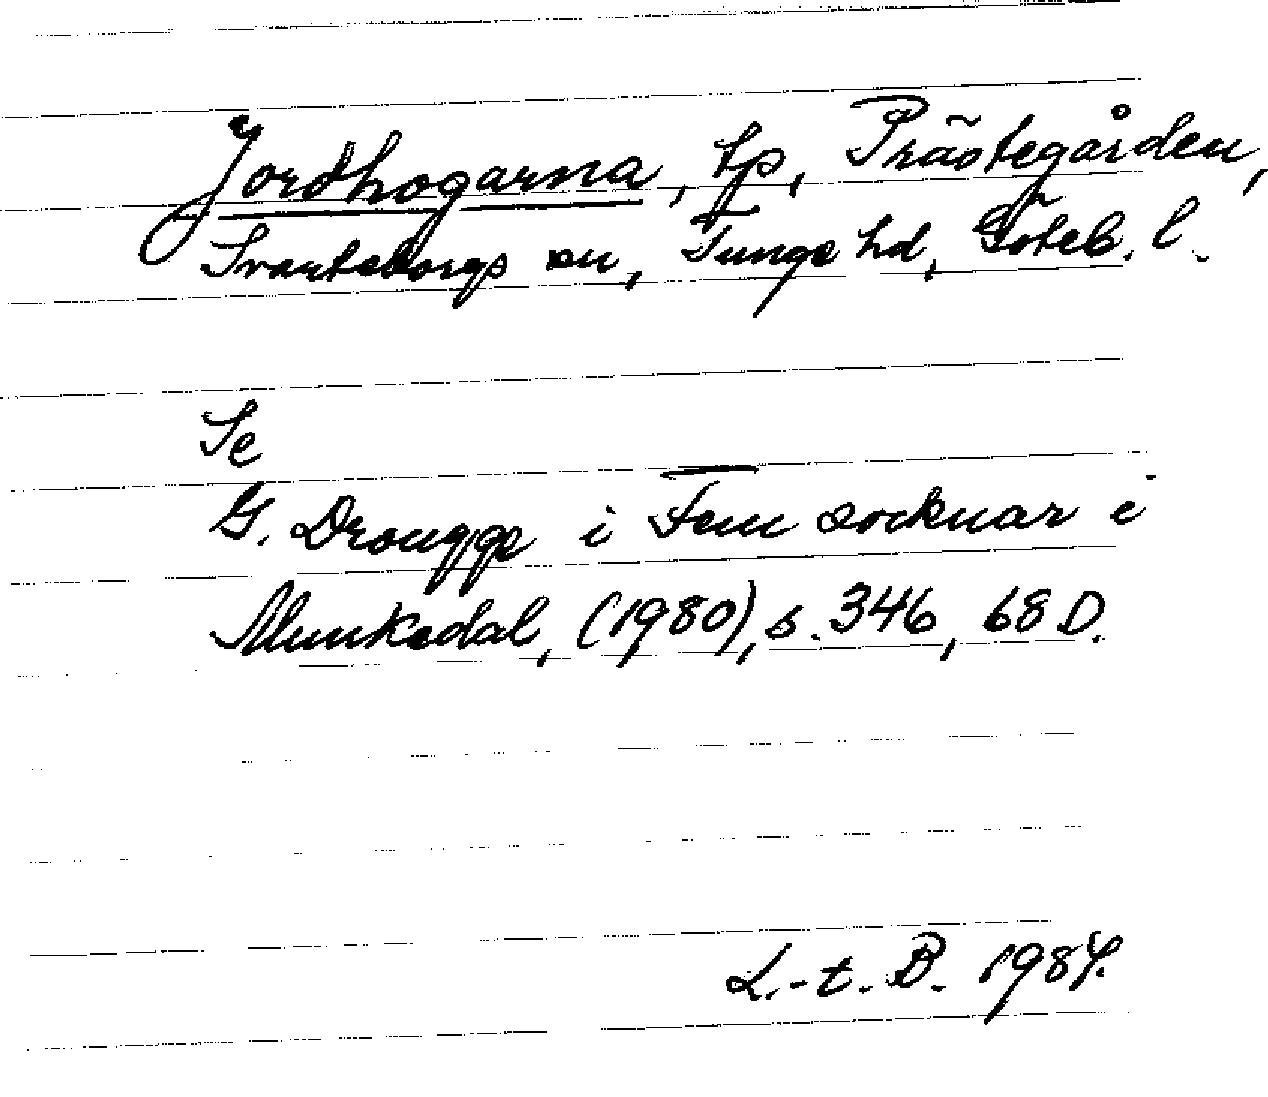 Jordhogarna, tp, Prästegården,
Svarteborgs sn, Tunge hd, Göteb. l.
Se
G. Drougge i Fem socknar i
Munkedal, (1980), s. 346, 68 D.
L.-t. B. 1984.